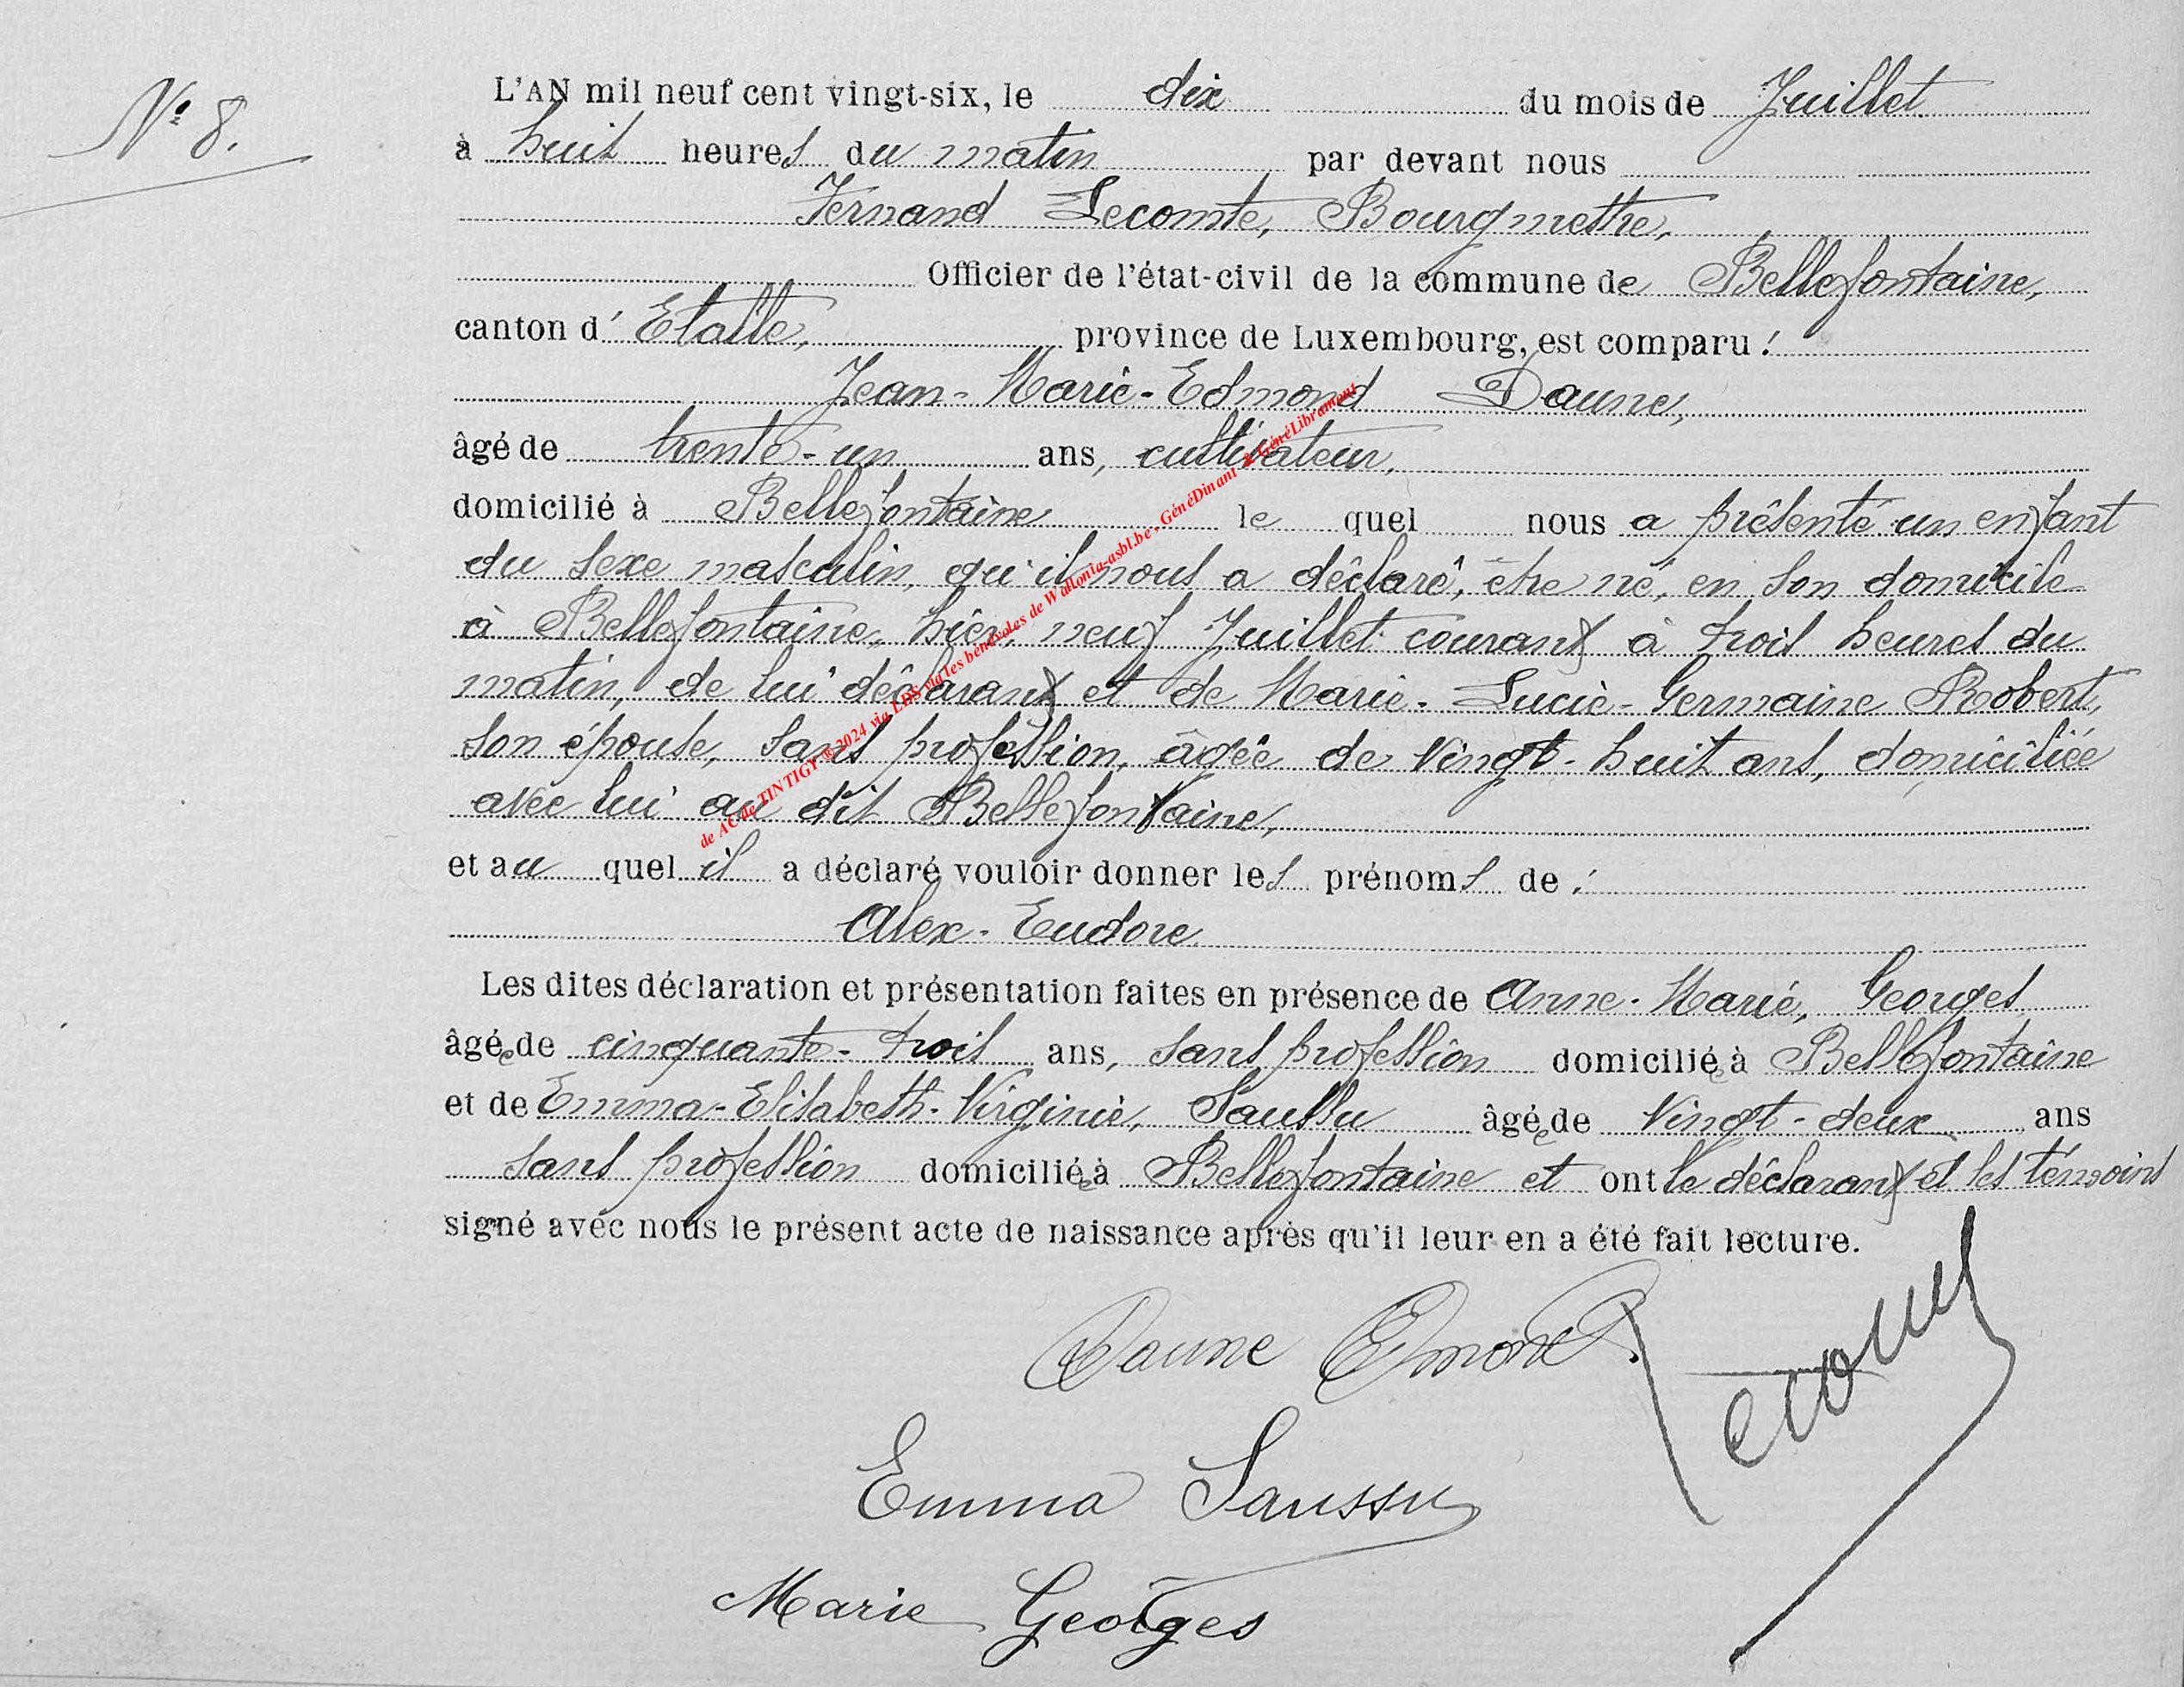 N° 8.
L'AN mil neuf cent vingt-six, le dix du mois de Juillet
à huit heures du matin par devant nous
Fernand Lecomte, Bourgmestre,
Officier de l'état-civil de la commune de Bellefontaine,
canton d' Etalle, province de Luxembourg, est comparu :
Jean-Marie-Edmond Daune,
âgé de trente-un ans, cultivateur,
domicilié à Bellefontaine le quel nous a présenté un enfant
du sexe masculin, qu'il nous a déclaré, être né, en son domicile
à Bellefontaine, hier, neuf Juillet courant à trois heures du
matin, de lui déclarant et de Marie-Lucie-Germaine Robert,
son épouse, sans profession, âgée de vingt-huit ans, domiciliée
avec lui au dit Bellefontaine,
et au quel il a déclaré vouloir donner les prénoms de :
Alex-Eudore
Les dites déclaration et présentation faites en présence de Anne-Marie, Georges
âgée de cinquante-trois ans, sans profession domiciliée à Bellefontaine
et de Emma-Elisabeth-Virginie, Saussu âgée de vingt-deux ans
sans profession domiciliée à Bellefontaine et ont le déclarant et les témoins
signé avec nous le présent acte de naissance après qu'il leur en a été fait lecture.
de AC de TINTIGY ® 2024 via LDS via les bénévoles de Wallonia-asbl.be - GénéDinant & GénéLibramont
Daune Edmond
Lecomte
Emma Saussu
Marie Georges